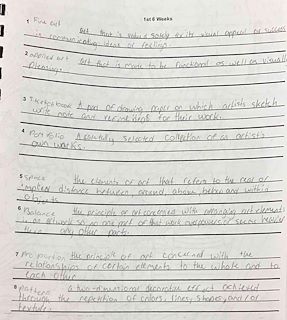 1st 6 Weeks
1 Fine art art that is valued solely for its visual appeal or success
is communicating ideas or feelings.
2 applied art art that is made to be functional as well as visually
pleasing.
3 Sketchbook A pad of drawing paper on which artists sketch
write note and refinements for their work.
4 Portfolio A carefully selected collection of an artist's
own works.
5 Space the elements of art that refers to the real or
implied distance between, around, above, below and within
objects
6 Balance the principle of art concerned with arranging art elements
in an artwork so no one part of that work overpowers or seems heavier
than any other part.
7 Proportion the principle of art concerned with the
relationships of certain elements to the whole and to
each other.
8 Pattern a two-dimentional decorative effect achieved
through the repetition of colors, lines, shapes, and/or
texture.